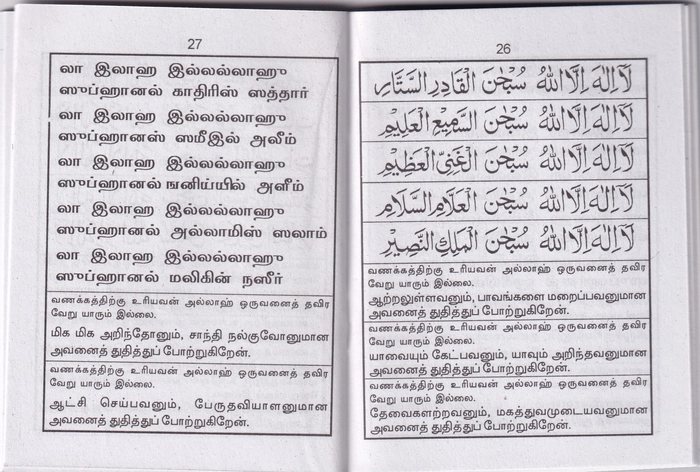 27
லா இலாஹ இல்லல்லாஹு
ஸுப்ஹானல் காதிரிஸ் ஸத்தார்
லா இலாஹ இல்லல்லாஹு
ஸுப்ஹானஸ் ஸமீஇல் அலீம்
லா இலாஹ இல்லல்லாஹு
ஸுப்ஹானல் ஙனிய்யில் அளீம்
லா இலாஹ இல்லல்லாஹு
ஸுப்ஹானல் அல்லாமிஸ் ஸலாம்
லா இலாஹ இல்லல்லாஹு
ஸுப்ஹானல் மலிகின் நஸீர்
வணக்கத்திற்கு உரியவன் அல்லாஹ் ஒருவனைத் தவிர
வேறு யாரும் இல்லை.
மிக மிக அறிந்தோனும், சாந்தி நல்குவோனுமான
அவனைத் துதித்துப் போற்றுகிறேன்.
வணக்கத்திற்கு உரியவன் அல்லாஹ் ஒருவனைத் தவிர
வேறு யாரும் இல்லை.
ஆட்சி செய்பவனும், பேருதவியாளனுமான
அவனைத் துதித்துப் போற்றுகிறேன்.
26
لَآ اِلٰهَ اِلَّا اللّٰهُ سُبْحٰنَ الْقَادِرِ السَّتَّارِ
لَآ اِلٰهَ اِلَّا اللّٰهُ سُبْحٰنَ السَّمِيْعِ الْعَلِيْمِ
لَآ اِلٰهَ اِلَّا اللّٰهُ سُبْحٰنَ الْغَنِيِّ الْعَظِيْمِ
لَآ اِلٰهَ اِلَّا اللّٰهُ سُبْحٰنَ الْعَلَّامِ السَّلَامِ
لَآ اِلٰهَ اِلَّا اللّٰهُ سُبْحٰنَ الْمَلِكِ النَّصِيْرِ
வணக்கத்திற்கு உரியவன் அல்லாஹ் ஒருவனைத் தவிர
வேறு யாரும் இல்லை.
ஆற்றலுள்ளவனும், பாவங்களை மறைப்பவனுமான
அவனைத் துதித்துப் போற்றுகிறேன்.
வணக்கத்திற்கு உரியவன் அல்லாஹ் ஒருவனைத் தவிர
வேறு யாரும் இல்லை.
யாவையும் கேட்பவனும், யாவும் அறிந்தவனுமான
அவனைத் துதித்துப் போற்றுகிறேன்.
வணக்கத்திற்கு உரியவன் அல்லாஹ் ஒருவனைத் தவிர
வேறு யாரும் இல்லை.
தேவைகளற்றவனும், மகத்துவமுடையவனுமான
அவனைத் துதித்துப் போற்றுகிறேன்.